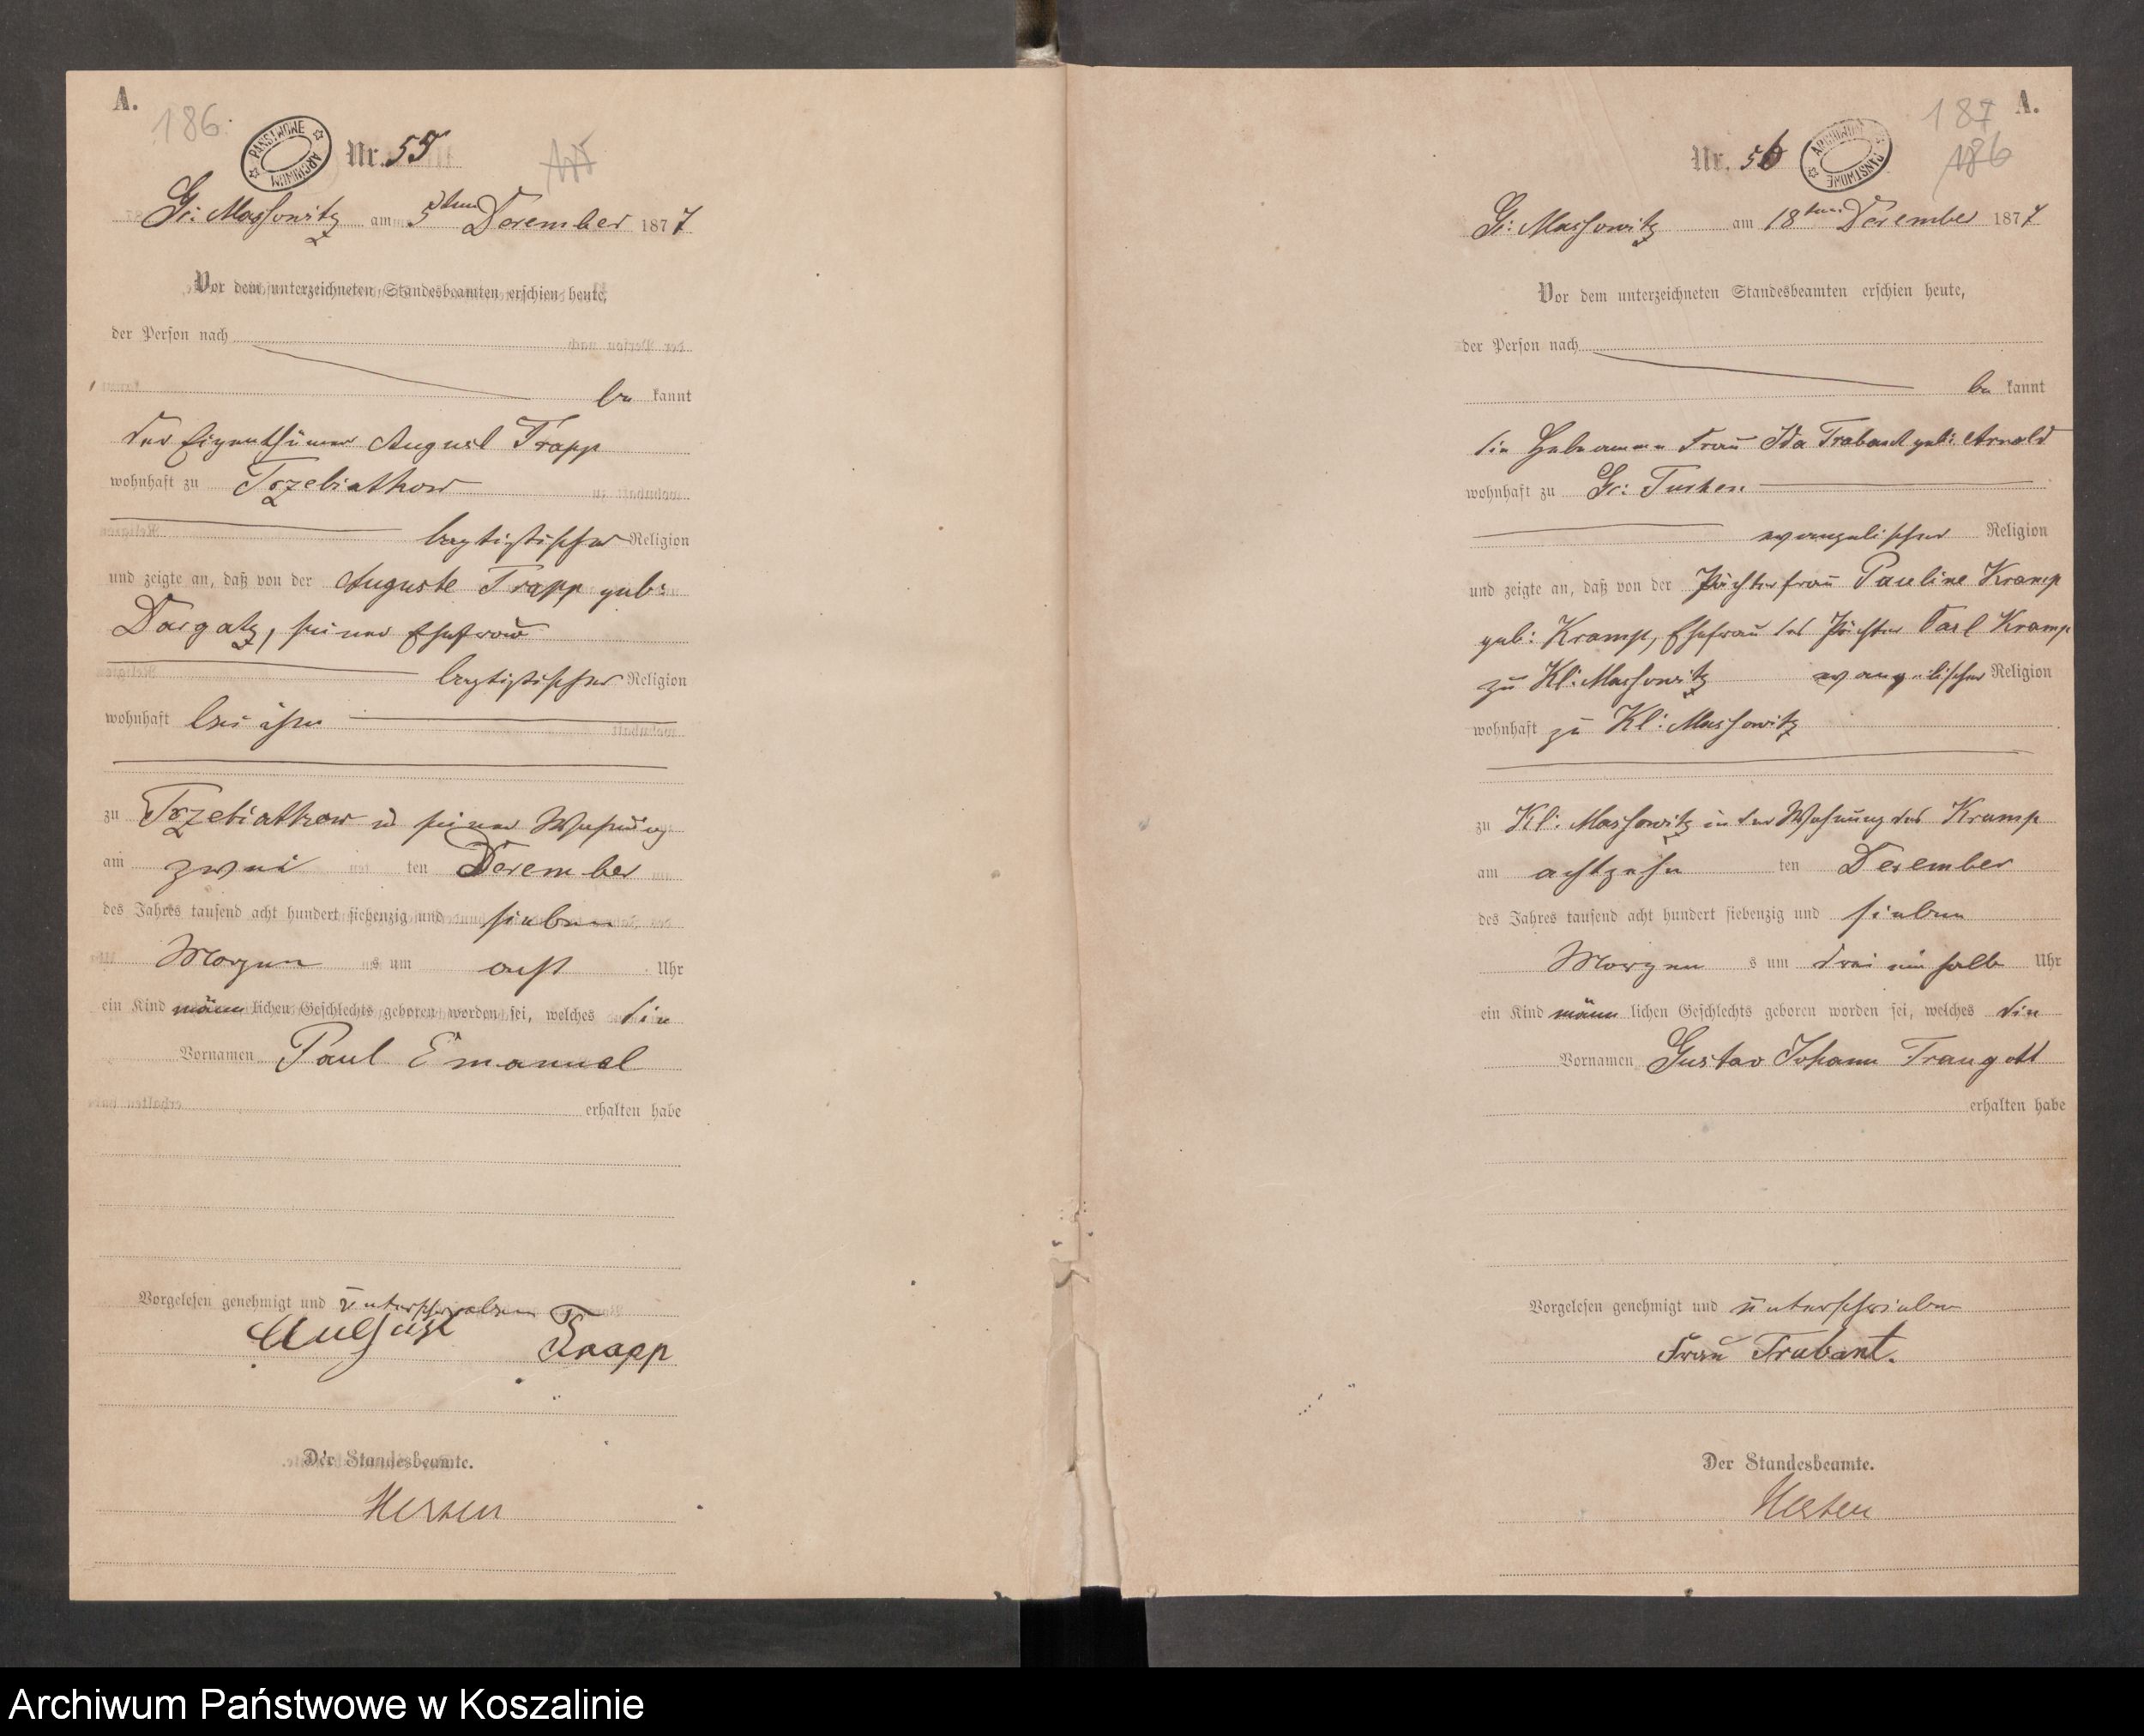 A.
186.
PAŃSTWOWE ARCHIWUM
Nr. 55
Gr: Massowitz am 5ten December 1877
Vor dem unterzeichneten Standesbeamten erschien heute,
der Person nach
be kannt
der Eigenthümer August Trapp
wohnhaft zu Trzebiatkow
baptistischer Religion
und zeigte an, daß von der Auguste Trapp geb:
Dargatz, seiner Ehefrau
baptistischer Religion
wohnhaft bei ihm
zu Trzebiatkow in seiner Wohnung
am zwei ten December
des Jahres tausend acht hundert siebenzig und sieben
Morgen s um acht Uhr
ein Kind männ lichen Geschlechts geboren worden sei, welches die
Vornamen Paul Emanuel
erhalten habe
Vorgelesen genehmigt und unterschrieben
August Trapp
Der Standesbeamte.
A.
187
186
ARCHIWUM PAŃSTWOWE
Nr. 56
Gr: Massowitz am 18ten December 1877
Vor dem unterzeichneten Standesbeamten erschien heute,
der Person nach
be kannt
die Hebamme Frau Ida Trabant geb: Arnold
wohnhaft zu Gr: Tuchen
evangelischer Religion
und zeigte an, daß von der Pächterfrau Pauline Kramp
geb: Kramp, Ehefrau des Pächter Carl Kramp
zu Kl: Massowitz evangelischer Religion
wohnhaft zu Kl: Massowitz
zu Kl: Massowitz in der Wohnung des Kramp
am achtzehn ten December
des Jahres tausend acht hundert siebenzig und sieben
Morgen s um drei ein halb Uhr
ein Kind männ lichen Geschlechts geboren worden sei, welches die
Vornamen Gustav Johann Traugott
erhalten habe
Vorgelesen genehmigt und unterschrieben
Frau Trabant.
Der Standesbeamte.
Archiwum Państwowe w Koszalinie